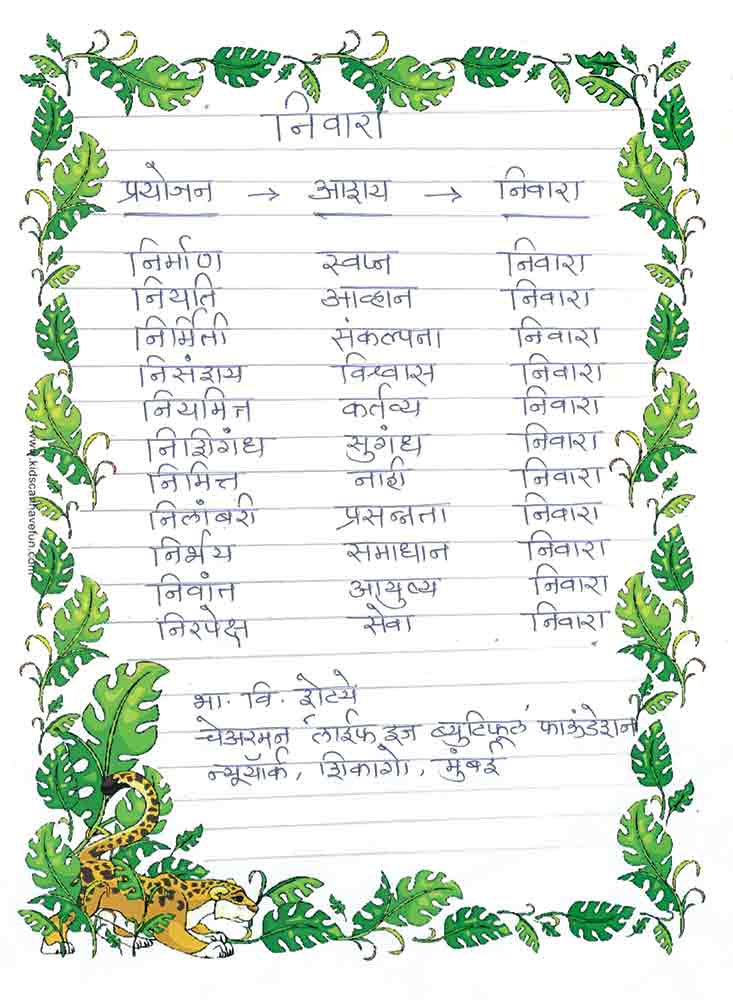 निवारा
प्रयोजन → आशय → निवारा
निर्माण स्वप्न निवारा
नियती आव्हान निवारा
निर्मिती संकल्पना निवारा
निसंशय विश्वास निवारा
नियमित्त कर्तव्य निवारा
निशिगंध सुगंध निवारा
निमित्त नाही निवारा
निलांबरी प्रसन्नता निवारा
निर्भय समाधान निवारा
निवांत आयुष्य निवारा
निरपेक्ष सेवा निवारा
भा. वि. शेट्ये
चेअरमन लाईफ इज ब्युटिफूल फाऊंडेशन
न्यूयॉर्क, शिकागो, मुंबई
www.kidscanhavefun.com